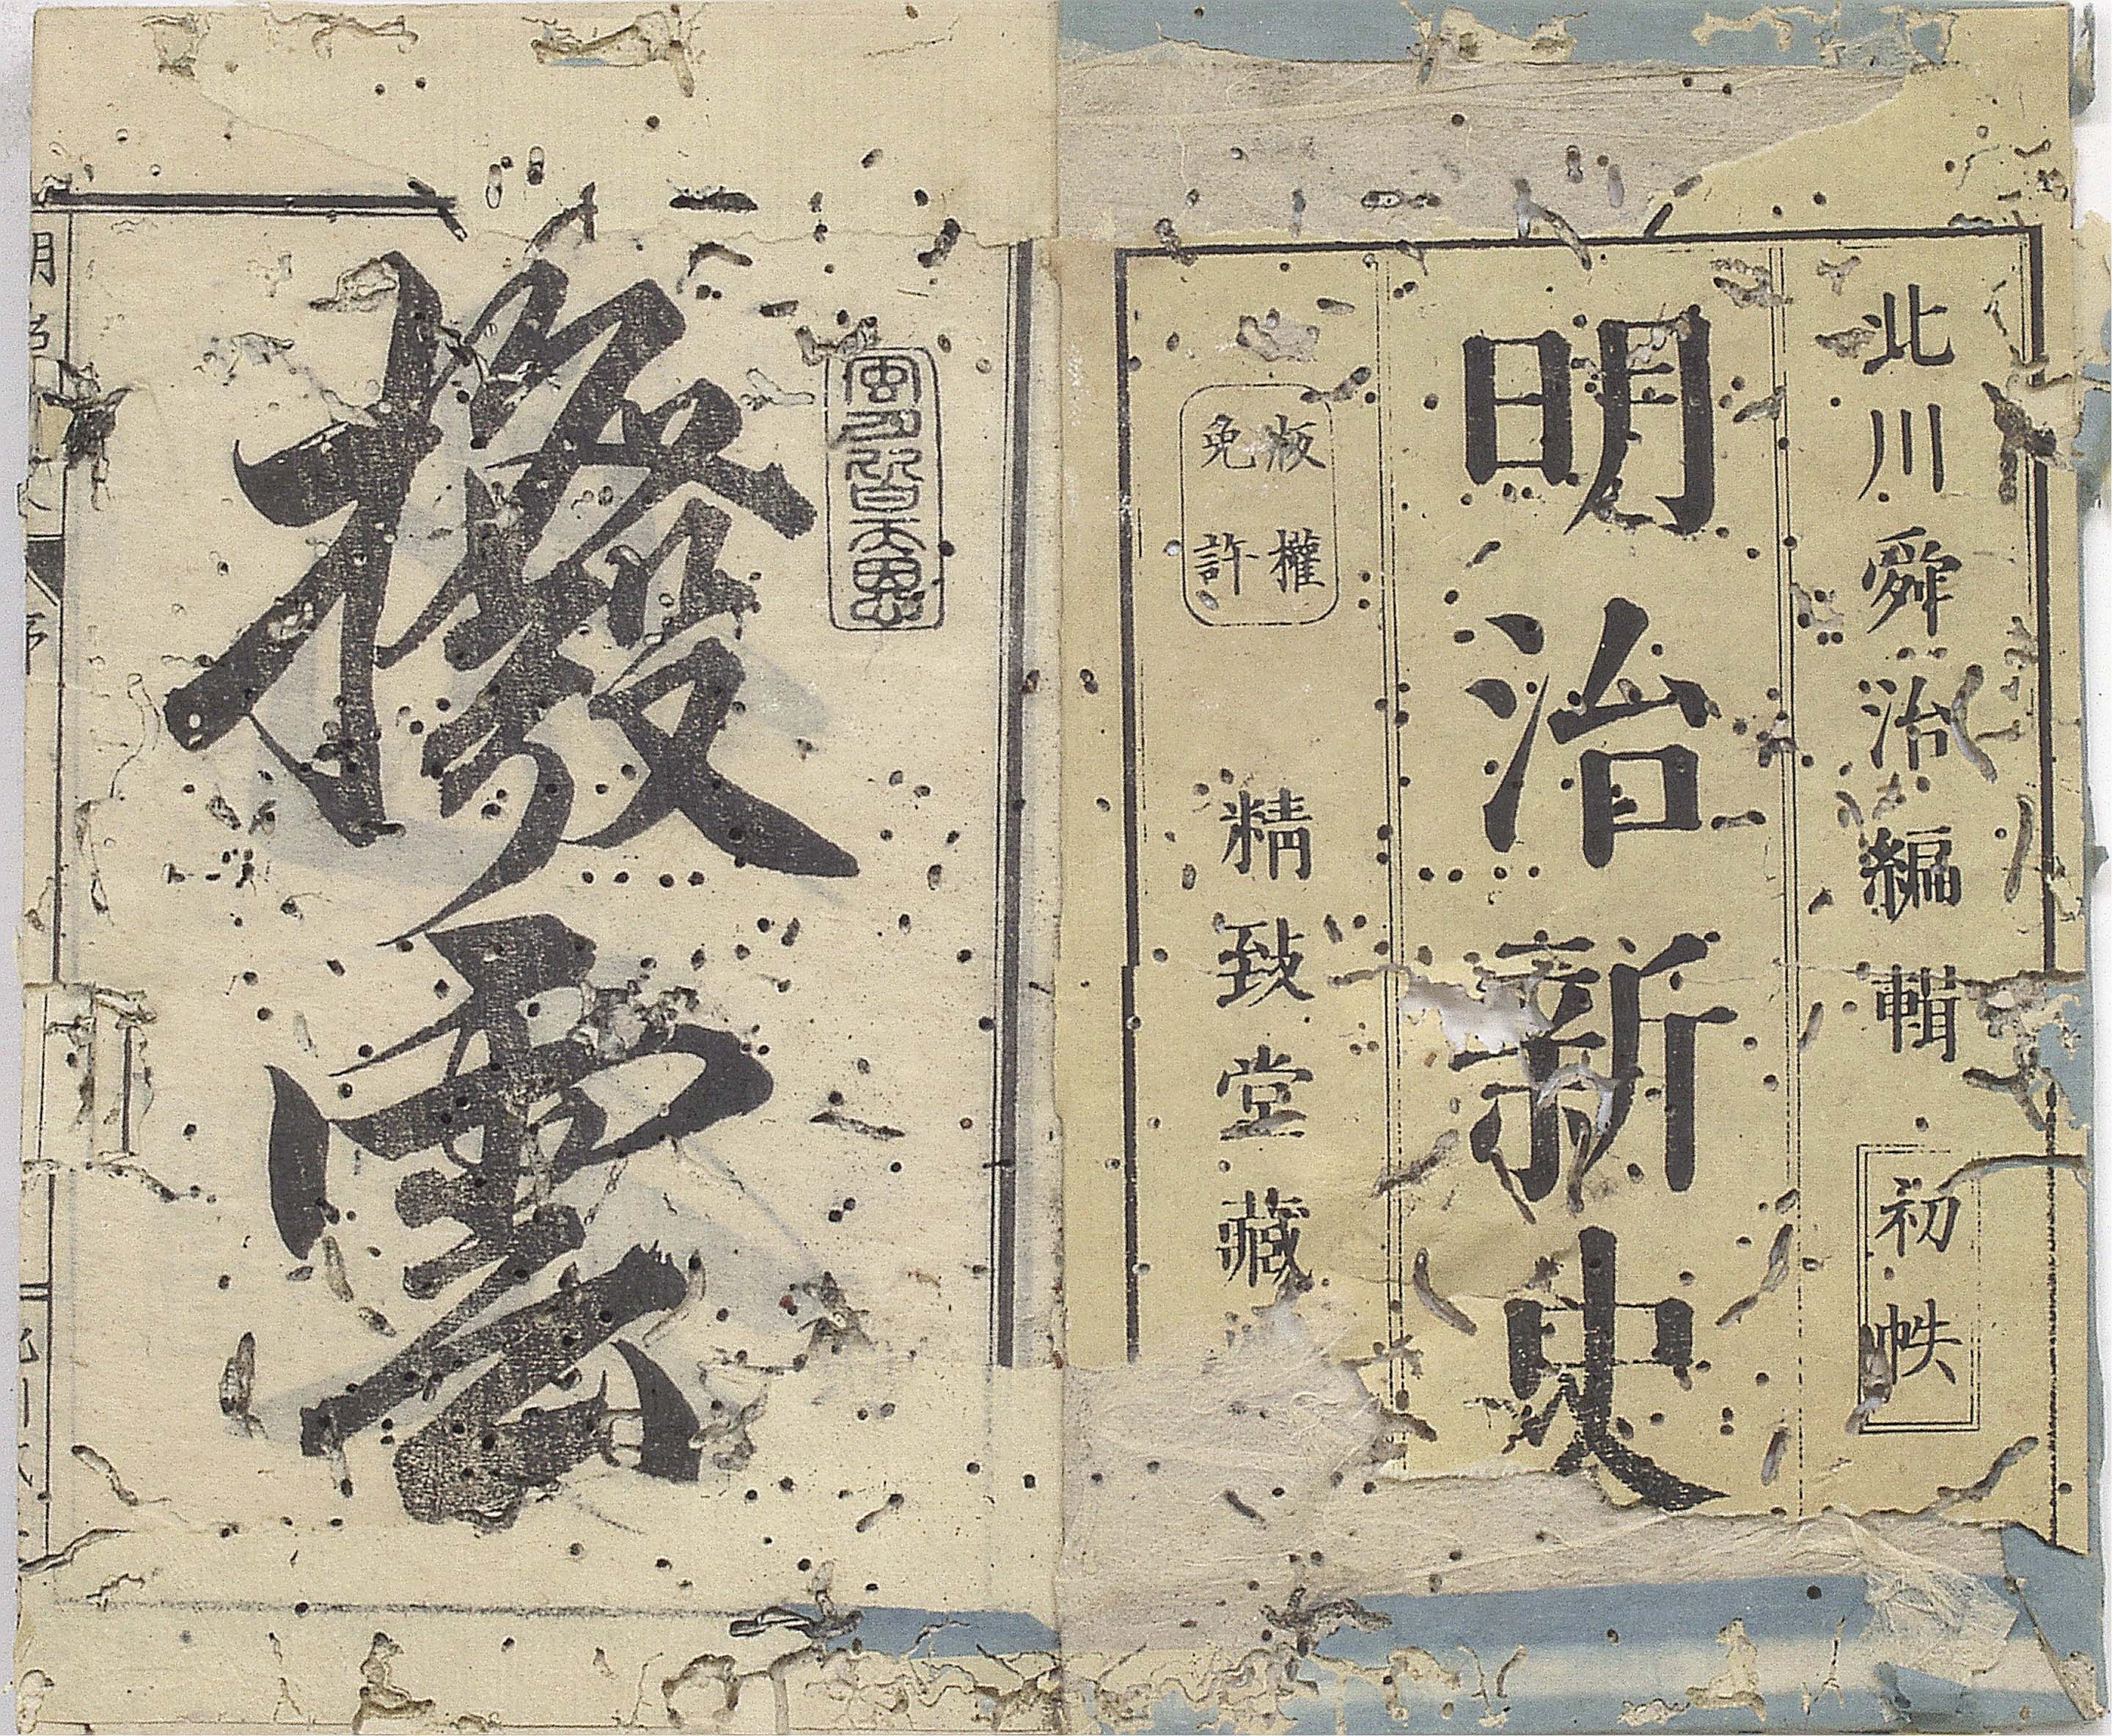 北川舜治編輯
初帙
明治新史
版權
免許
精致堂藏
撥雲